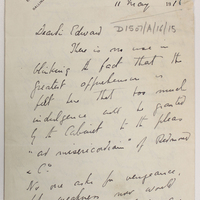 11 May 1916
Dearest Edward D1507/A/16/15
There is no use in
blinking the fact that the
greatest apprehension is
felt here that too much
indulgence will be granted
by the Cabinet to the pleas
"ad misericordiam" of Redmond
& Co.
No one asks for vengeance,
but weakness now would